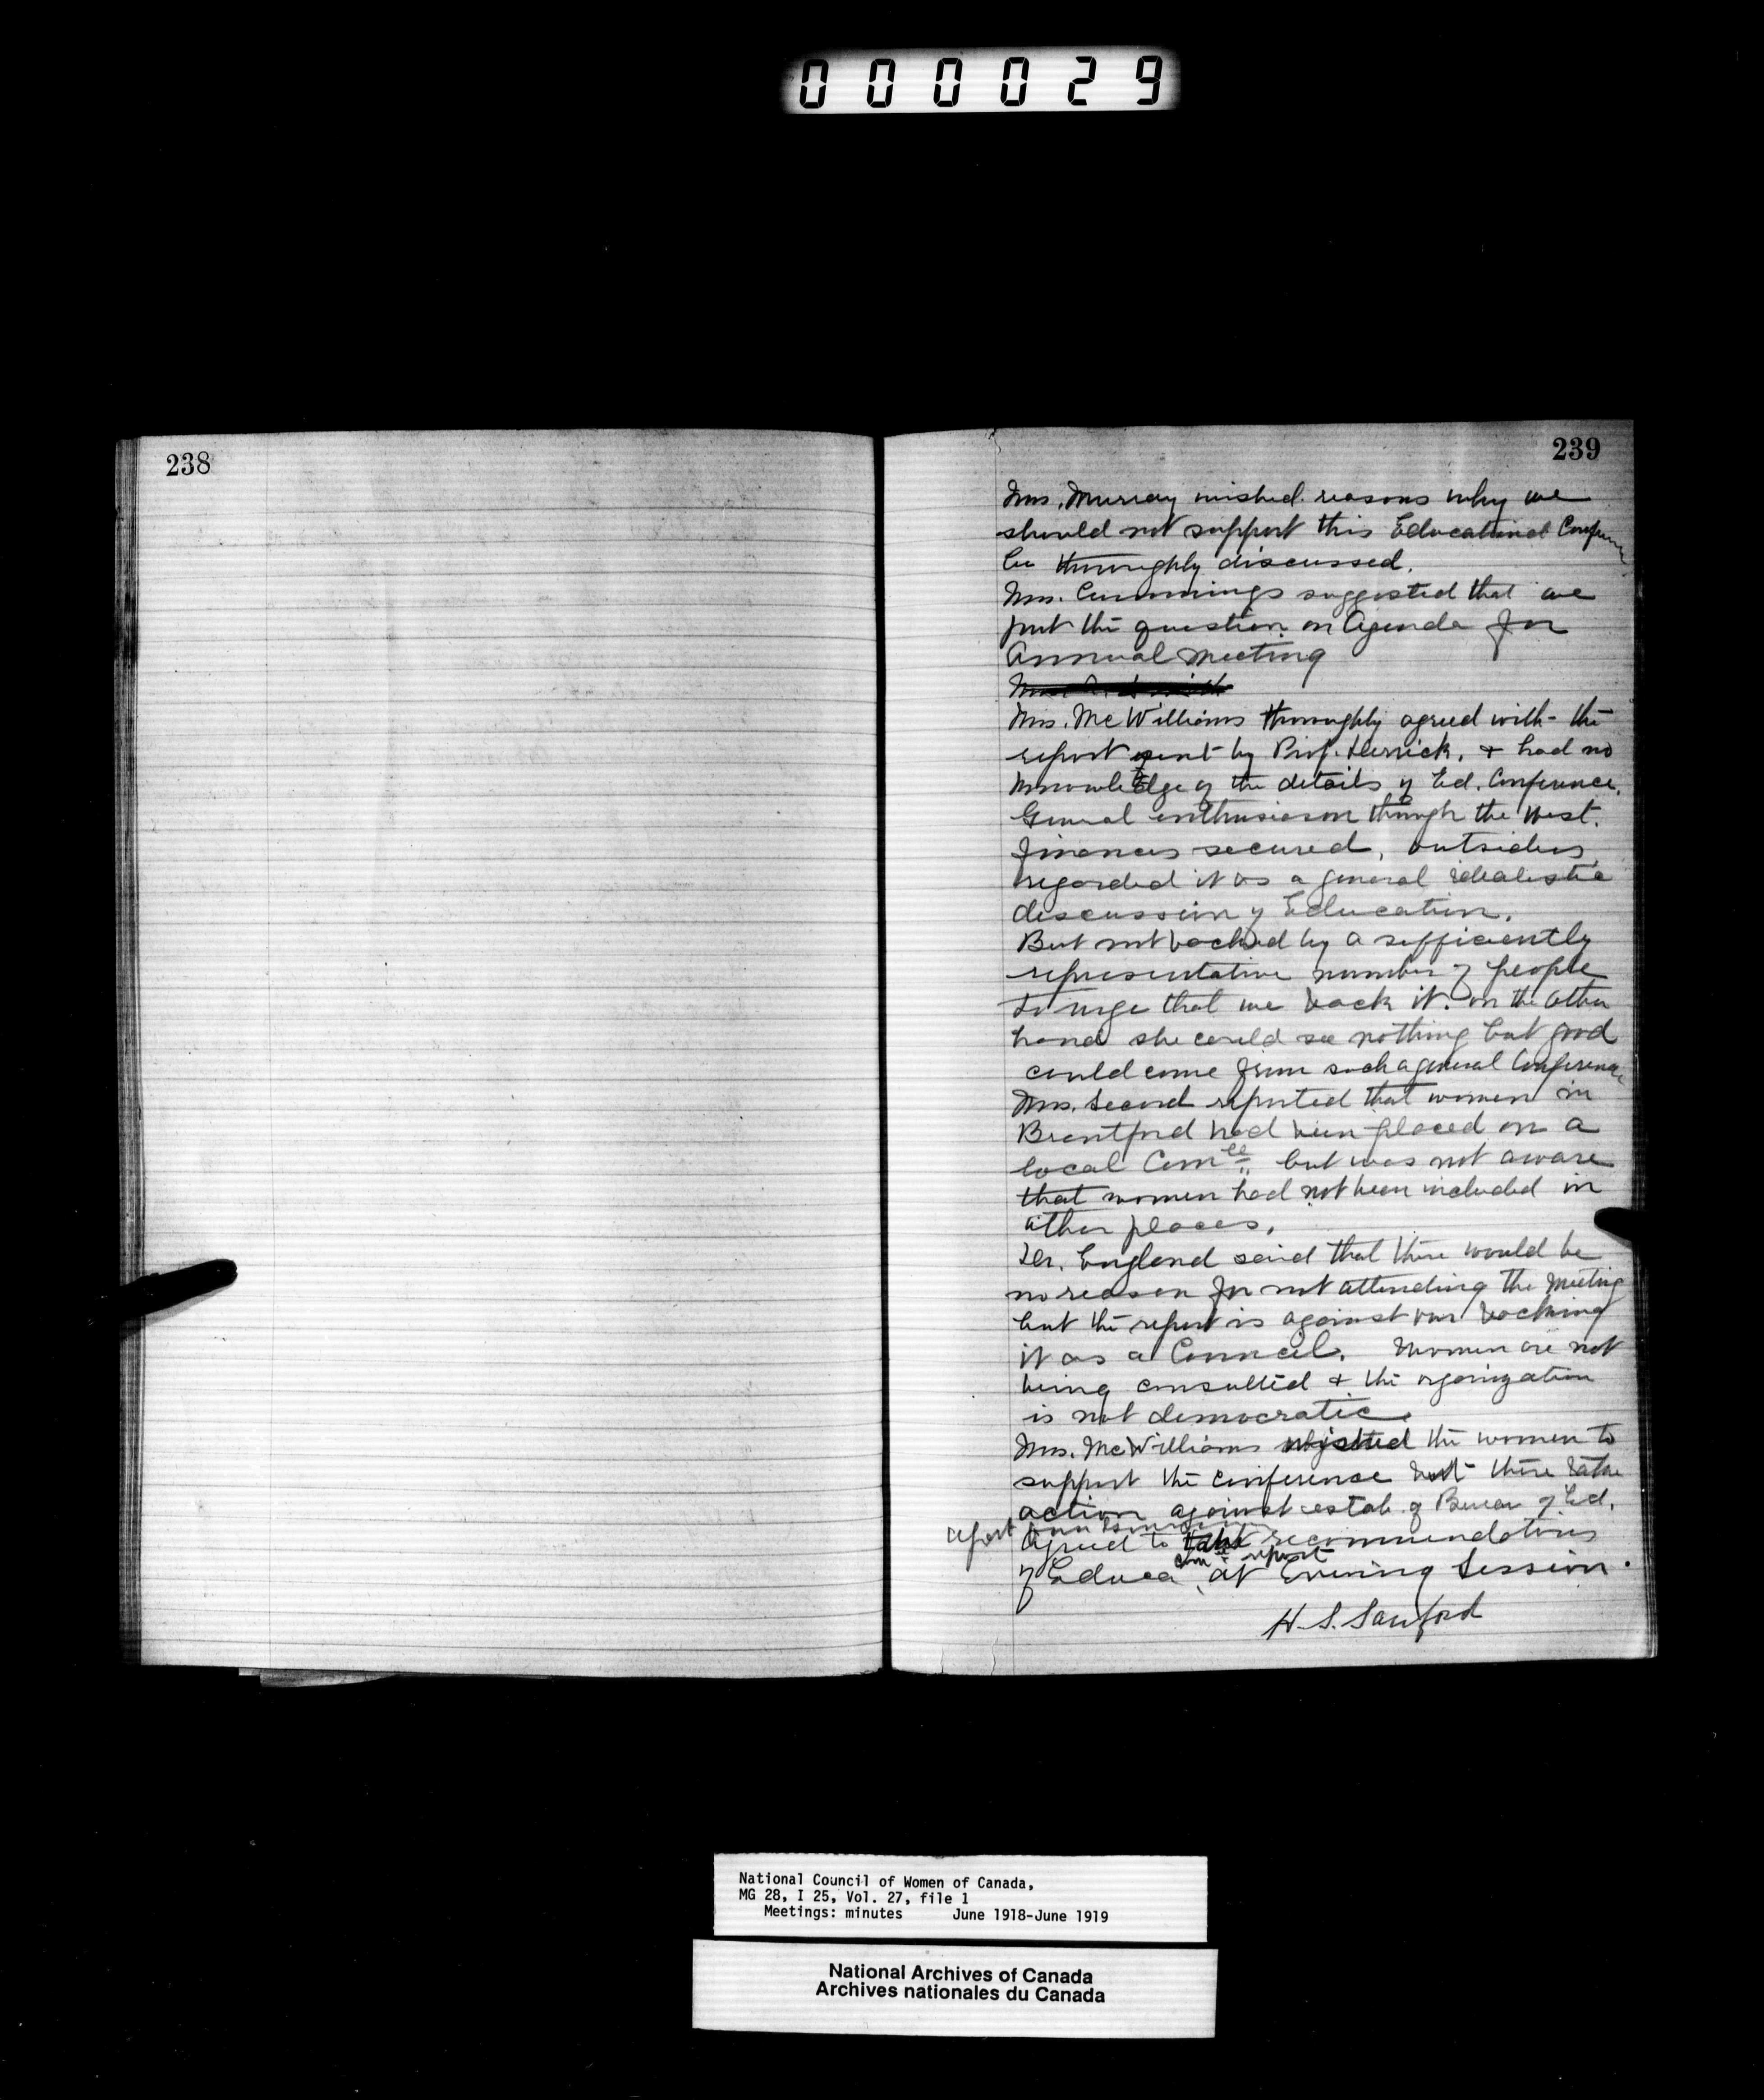 000029
238
239
Mrs. Murray wished reasons why we
should not support this Educational Conference
be thoroughly discussed.
Mrs. Cummings suggested that we
put the question on Agenda for
Annual Meeting
Mrs. McWilliams thoroughly agreed with the
report sent by Prof. Derrick, & had no
knowledge of the details of Ed. Conference.
General enthusiasm through the West.
finances secured, outsiders
regarded it as a general idealistic
discussion of Education.
But not backed by a sufficiently
representative number of people
to urge that we back it. on the other
hand she could see nothing but good
could come from such a general Conference
Mrs. Secord reported that women in
Brantford had been placed on a
local Comtee, but was not aware
that women had not been included in
other places.
Dr. England said that there would be
no reason for not attending the meeting
but the report is against our backing
it as a Council. Women are not
being consulted & the organization
is not democratic.
Mrs. McWilliams wished the women to
support the conference but there take
action against estab. of Bureau of Ed.
report from
Agreed to take recommendations
Comtee report
of Educa at Evening Session.
H. S. Sanford
National Council of Women of Canada,
MG 28, I 25, Vol. 27, file 1
Meetings: minutes June 1918-June 1919
National Archives of Canada
Archives nationales du Canada